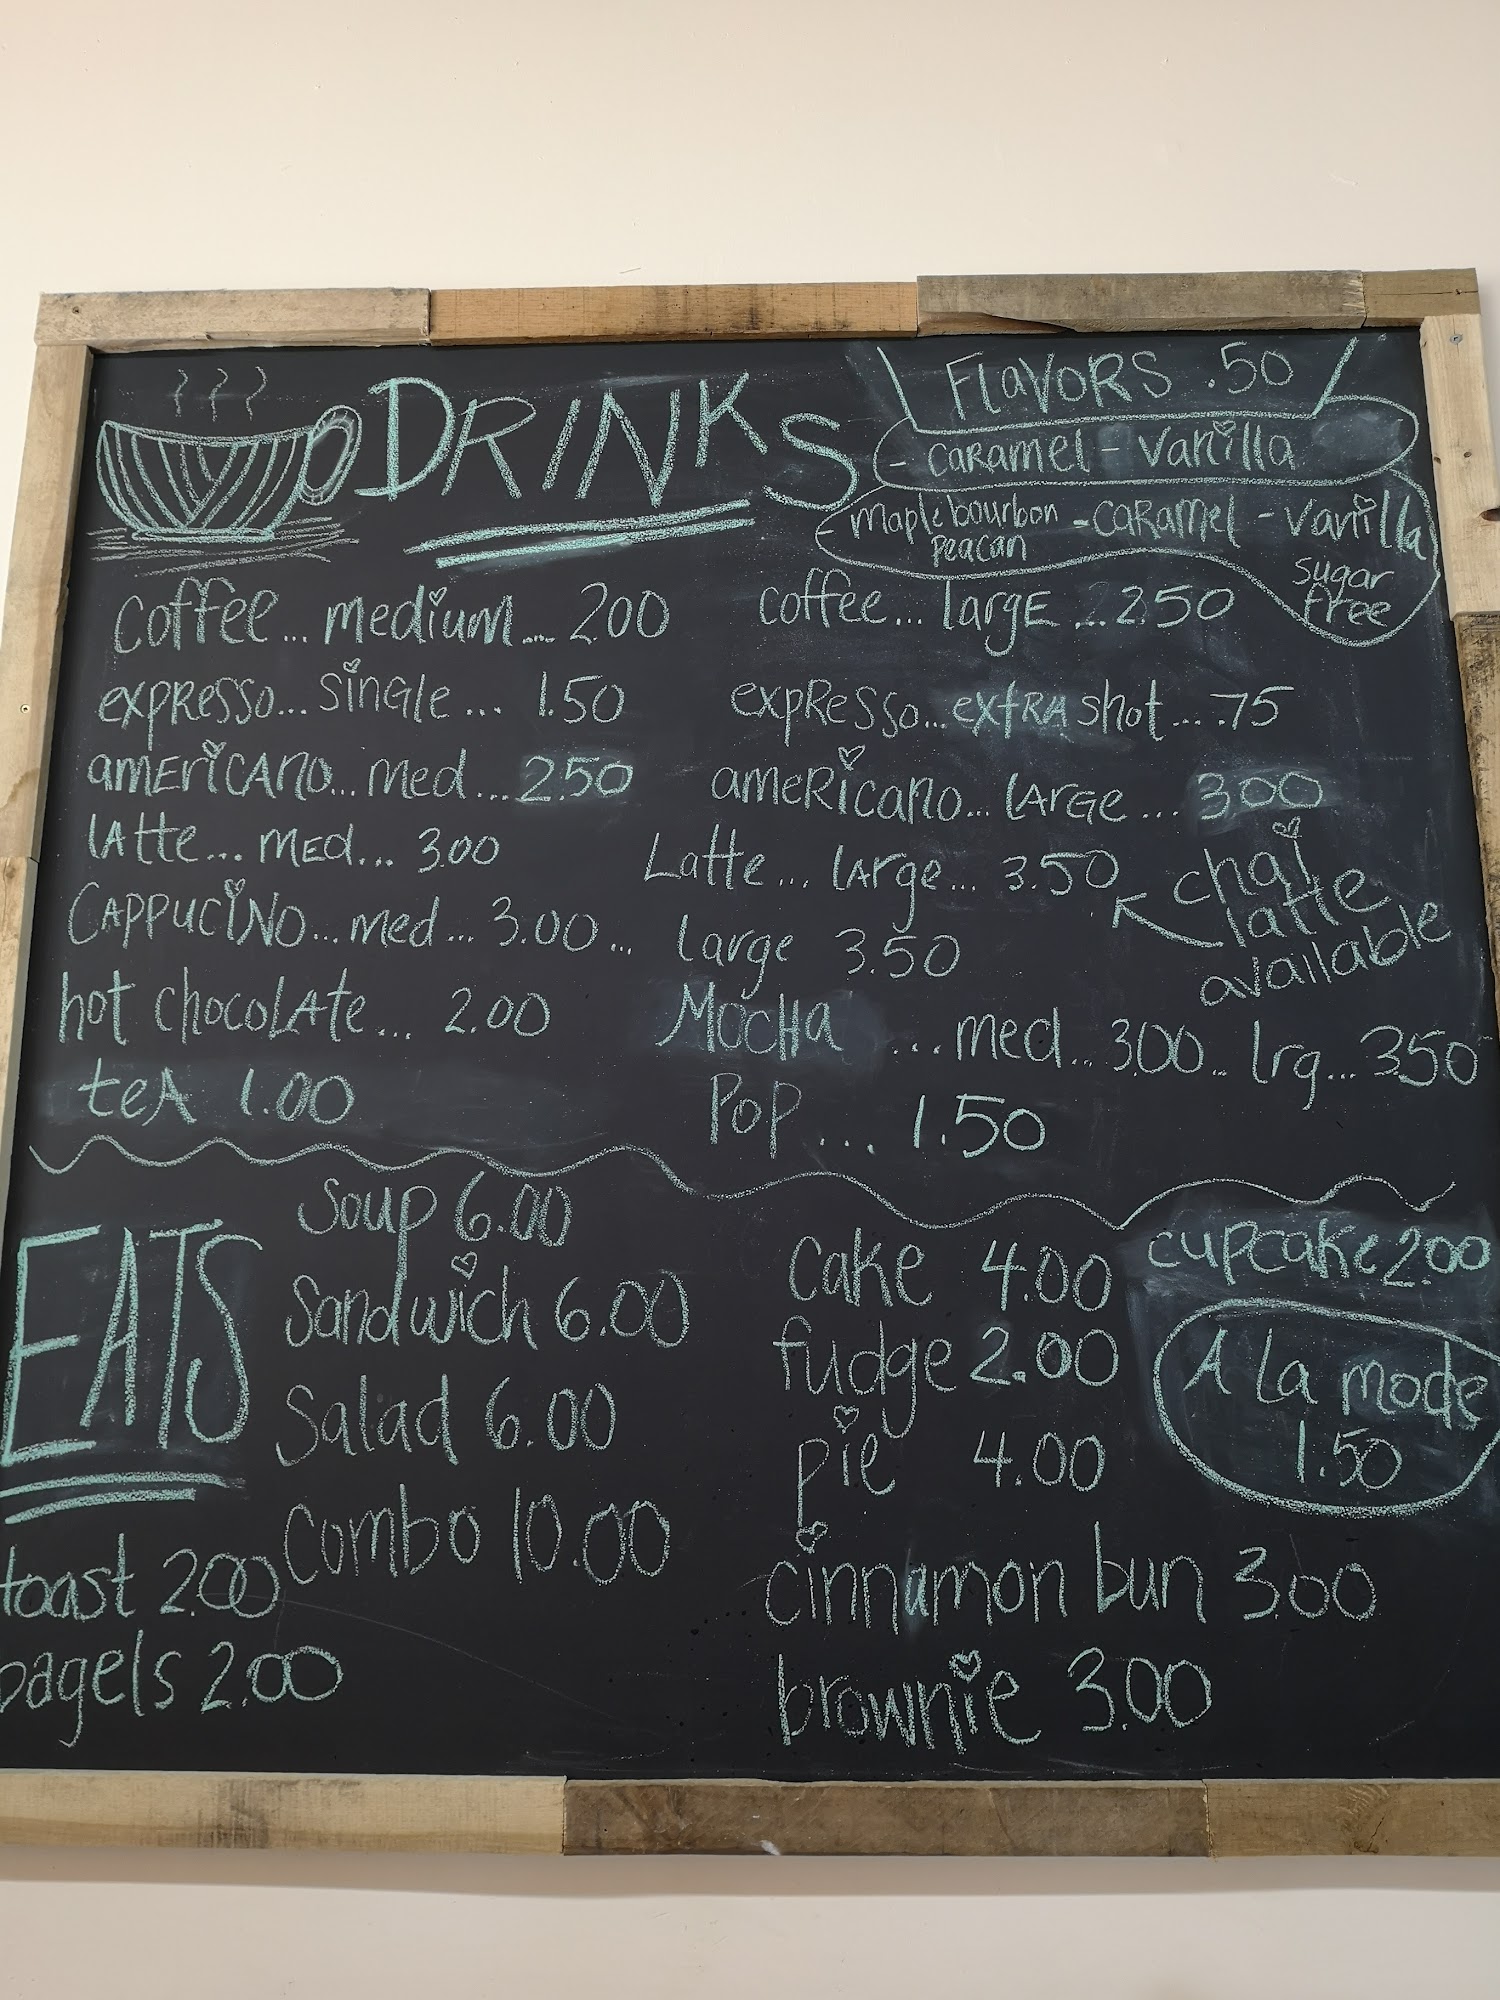 DRINKS
FLAVORS .50
- CARAMEL - Vanilla
- maple bourbon peacan - CARAMEL - Vanilla sugar free
coffee... medium... 200
coffee... largE ...250
expResso... single... 1.50
expResso... extRA shot... .75
amEriCANO... med... 2.50
ameRicano... LARGE... 300
LAtte... MEd... 3.00
Latte... lArge... 3.50
chai latte available
CAPPUCiNO... med... 3.00...
large 3.50
hot chocoLAte... 2.00
MocHa ...med... 3.00.. lrg... 350
teA 1.00
POP .... 1.50
EATS
Soup 6.00
Sandwich 6.00
Salad 6.00
Combo 10.00
toast 2.00
bagels 2.00
cake 4.00
cupcake 2.00
fudge 2.00
A La mode
1.50
pie 4.00
cinnamon bun 3.00
brownie 3.00